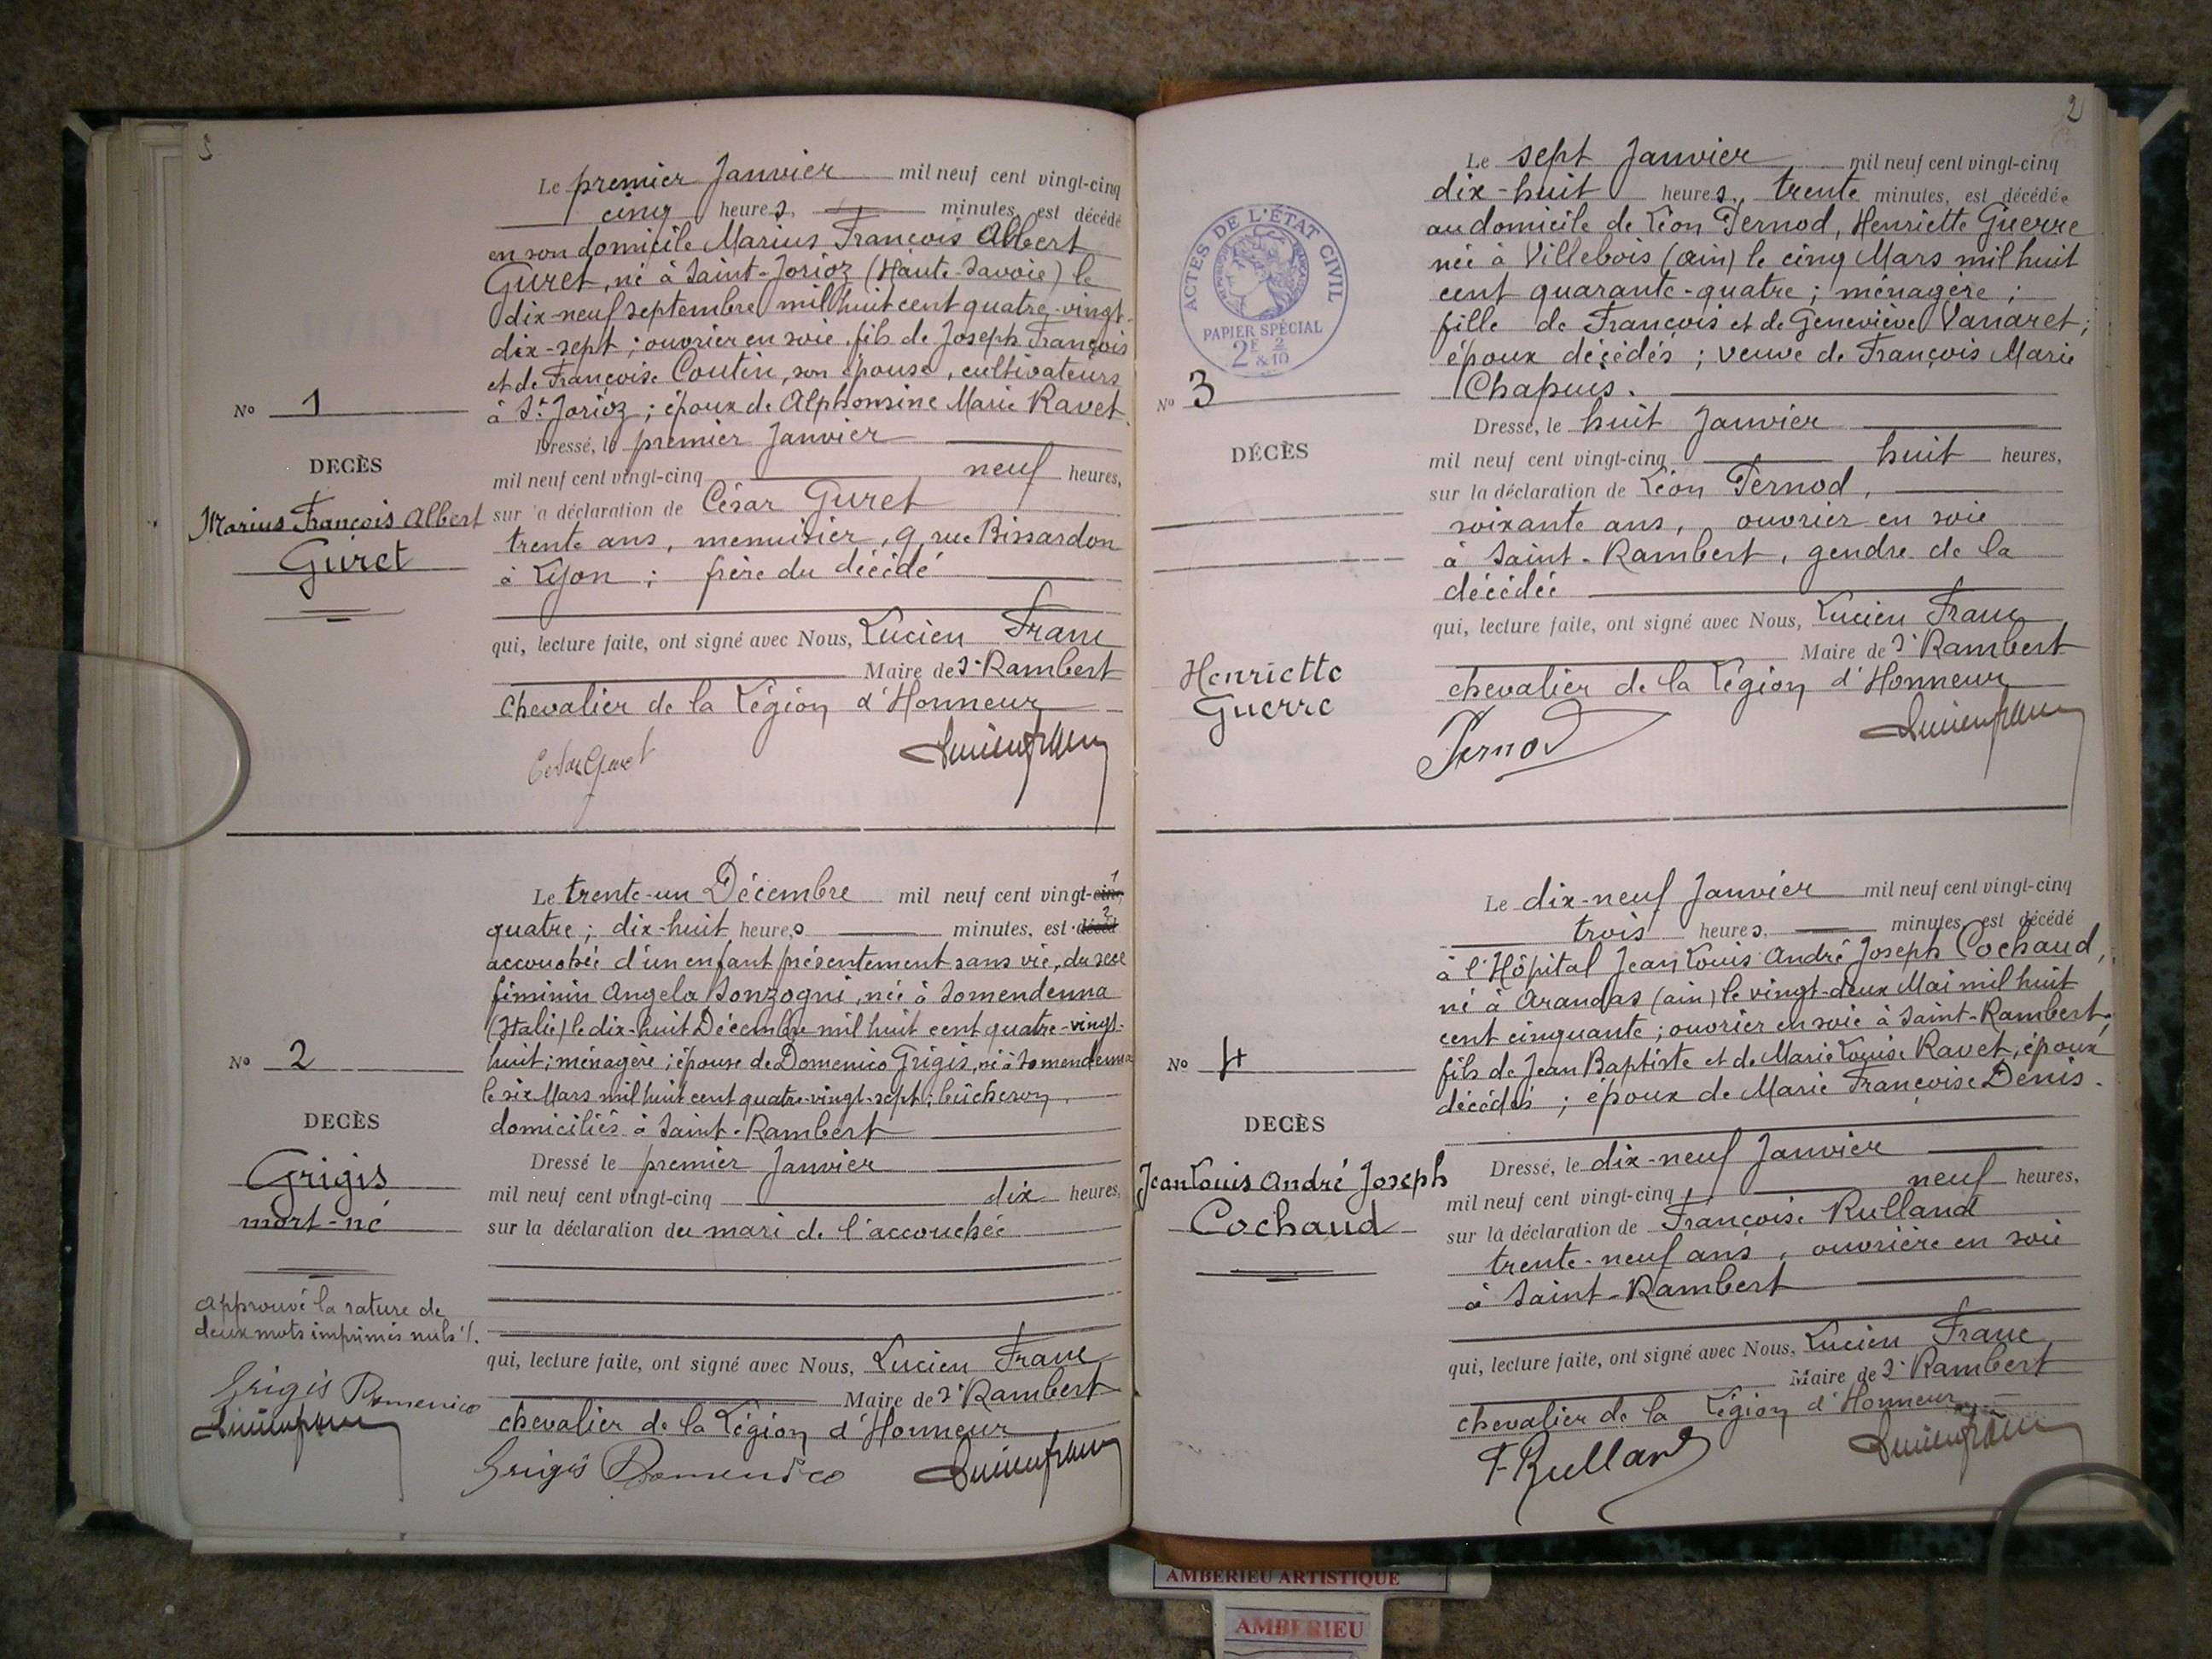 3
Le premier Janvier mil neuf cent vingt-cinq
cinq heures, minutes, est décédé
en son domicile Marius François Albert
Guret, né à Saint-Jorioz (Haute-Savoie) le
dix-neuf septembre mil huit cent quatre-vingt-
dix-sept ; ouvrier en soie, fils de Joseph François
et de Françoise Coutin, son épouse, cultivateurs
à St Jorioz ; époux de Alphonsine Marie Ravet.
No 1
Dressé, le premier Janvier
DECÈS
mil neuf cent vingt-cinq neuf heures,
Marius François Albert
Guret
sur la déclaration de César Guret
trente ans, menuisier, 9, rue Bissardon
à Lyon ; frère du décédé
qui, lecture faite, ont signé avec Nous, Lucien Franc
Maire de St Rambert
chevalier de la Légion d'Honneur
Cesar Guret
Lucien franc
Le trente-un Décembre mil neuf cent vingt-cinq 1
quatre ; dix-huit heures minutes, est décéd 2
accouchée d'un enfant présentement sans vie, du sexe
féminin Angela Sonzogni, née à Somendenna
(Italie) le dix-huit Décembre mil huit cent quatre-vingt-
huit ; ménagère ; épouse de Domenico Grigis, né à Somendenna
le six Mars mil huit cent quatre-vingt-sept ; bûcheron,
domiciliés à Saint-Rambert
No 2
DECÈS
Dressé le premier Janvier
Grigis
mort-né
mil neuf cent vingt-cinq dix heures,
sur la déclaration du mari de l'accouchée
approuvé la rature de
deux mots imprimés nuls ./.
Grigis Domenico
Lucien franc
qui, lecture faite, ont signé avec Nous, Lucien Franc
Maire de St Rambert
chevalier de la Légion d'Honneur
Grigis Domenico
Lucien franc
2
ACTES DE L'ÉTAT CIVIL
PAPIER SPÉCIAL
2F 2
&10
Le sept Janvier mil neuf cent vingt-cinq
dix-huit heures, trente minutes, est décédée
au domicile de Léon Pernod, Henriette Guerre
née à Villebois (ain) le cinq Mars mil huit
cent quarante-quatre ; ménagère ;
fille de François et de Geneviève Vanaret ;
époux décédés ; veuve de François Marie
Chapuis.
No 3
Dressé, le huit Janvier
DÉCÈS
mil neuf cent vingt-cinq huit heures,
sur la déclaration de Léon Pernod,
soixante ans, ouvrier en soie
à Saint-Rambert, gendre de la
décédée
Henriette
Guerre
qui, lecture faite, ont signé avec Nous, Lucien Franc
Maire de St Rambert
chevalier de la Légion d'Honneur
Pernod
Lucien franc
Le dix-neuf Janvier mil neuf cent vingt-cinq
trois heures, minutes, est décédé
à l'Hôpital Jean Louis André Joseph Cochaud,
né à Arandas (ain) le vingt-deux Mai mil huit
cent cinquante ; ouvrier en soie à Saint-Rambert ;
fils de Jean Baptiste et de Marie Louise Ravet, époux
décédés ; époux de Marie Françoise Denis.
No 4
DECÈS
Dressé, le dix-neuf Janvier
Jean Louis André Joseph
Cochaud
mil neuf cent vingt-cinq, neuf heures,
sur la déclaration de Françoise Rulland
trente-neuf ans, ouvrière en soie
à Saint-Rambert
qui, lecture faite, ont signé avec Nous, Lucien Franc
Maire de St Rambert
chevalier de la Légion d'Honneur
F. Rulland
Lucien franc
AMBERIEU ARTISTIQUE
AMBERIEU